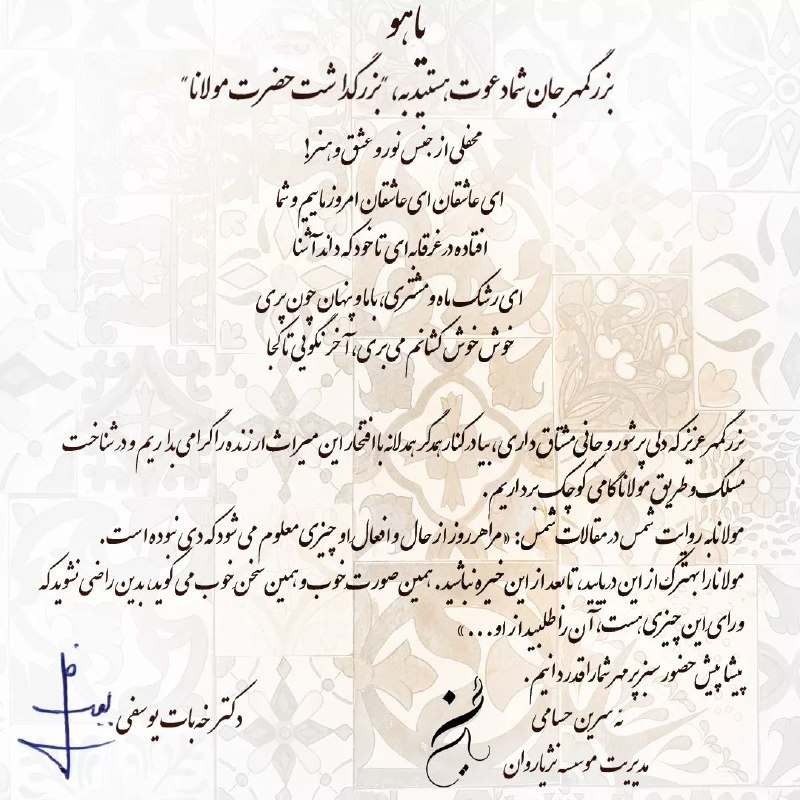 یاهو
بزرگمهر جان شما دعوت هستید به، "بزرگداشت حضرت مولانا"
محفلی از جنس نور و عشق و هنر!
ای عاشقان ای عاشقان امروز ماییم و شما
افتاده در غرقابه ای تا خود که داند آشنا
ای رشک ماه و مشتری، با ما و پنهان چون پری
خوش خوش کشانم می بری، آخر نگویی تا کجا
بزرگمهر عزیز که دلی پرشور و جانی مشتاق داری، بیا در کنار همدگر همدلانه با افتخار این میراث ارزنده را گرامی بداریم و در شناخت
مسلک و طریق مولانا گامی کوچک برداریم.
مولانا به روایت شمس در مقالات شمس: «مرا هر روز از حال و افعال او چیزی معلوم می شود که دی نبوده است.
مولانا را بهترک از این دریابید، تا بعد از این خیره نباشید. همین صورت خوب و همین سخن خوب می گوید، بدین راضی نشوید که
ورای این چیزی هست، آن را طلبید از او...»
پیشاپیش حضور سبز پر مهر شما را قدر دانیم.
نه سرین حسامی
مدیریت موسسه نژیاروان
دکتر خه بات یوسفی